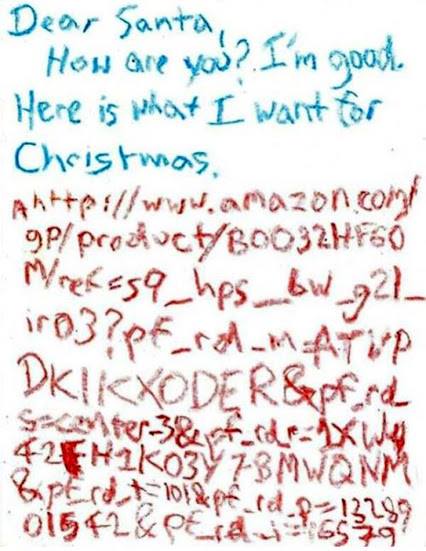 Dear Santa,
How are you? I'm good.
Here is what I want for
Christmas.
Ahttp://www.amazon.com/
gp/product/B0032HF60
M/ref=s9_hps_bw_g21_
ir03?pf_rd_m=ATVP
DKIKX0DER&pf_rd_
s=center-3&pf_rd_r=1XWY
42EH1K03Y7BMWQNM
&pf_rd_t=101&pf_rd_p=13289
01542&pf_rd_i=16579